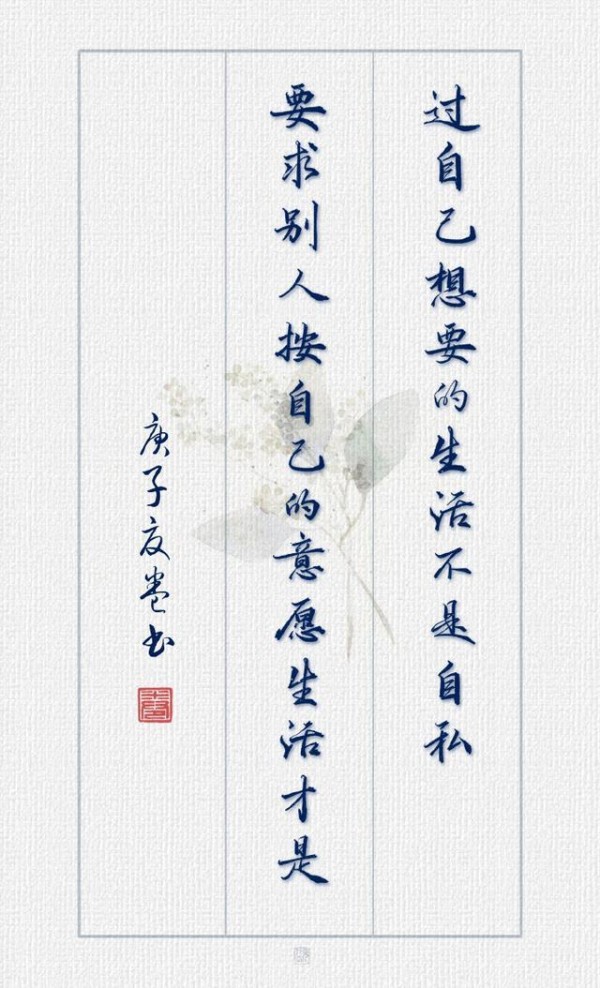 过自己想要的生活不是自私
要求别人按自己的意愿生活才是
庚子夜卷书